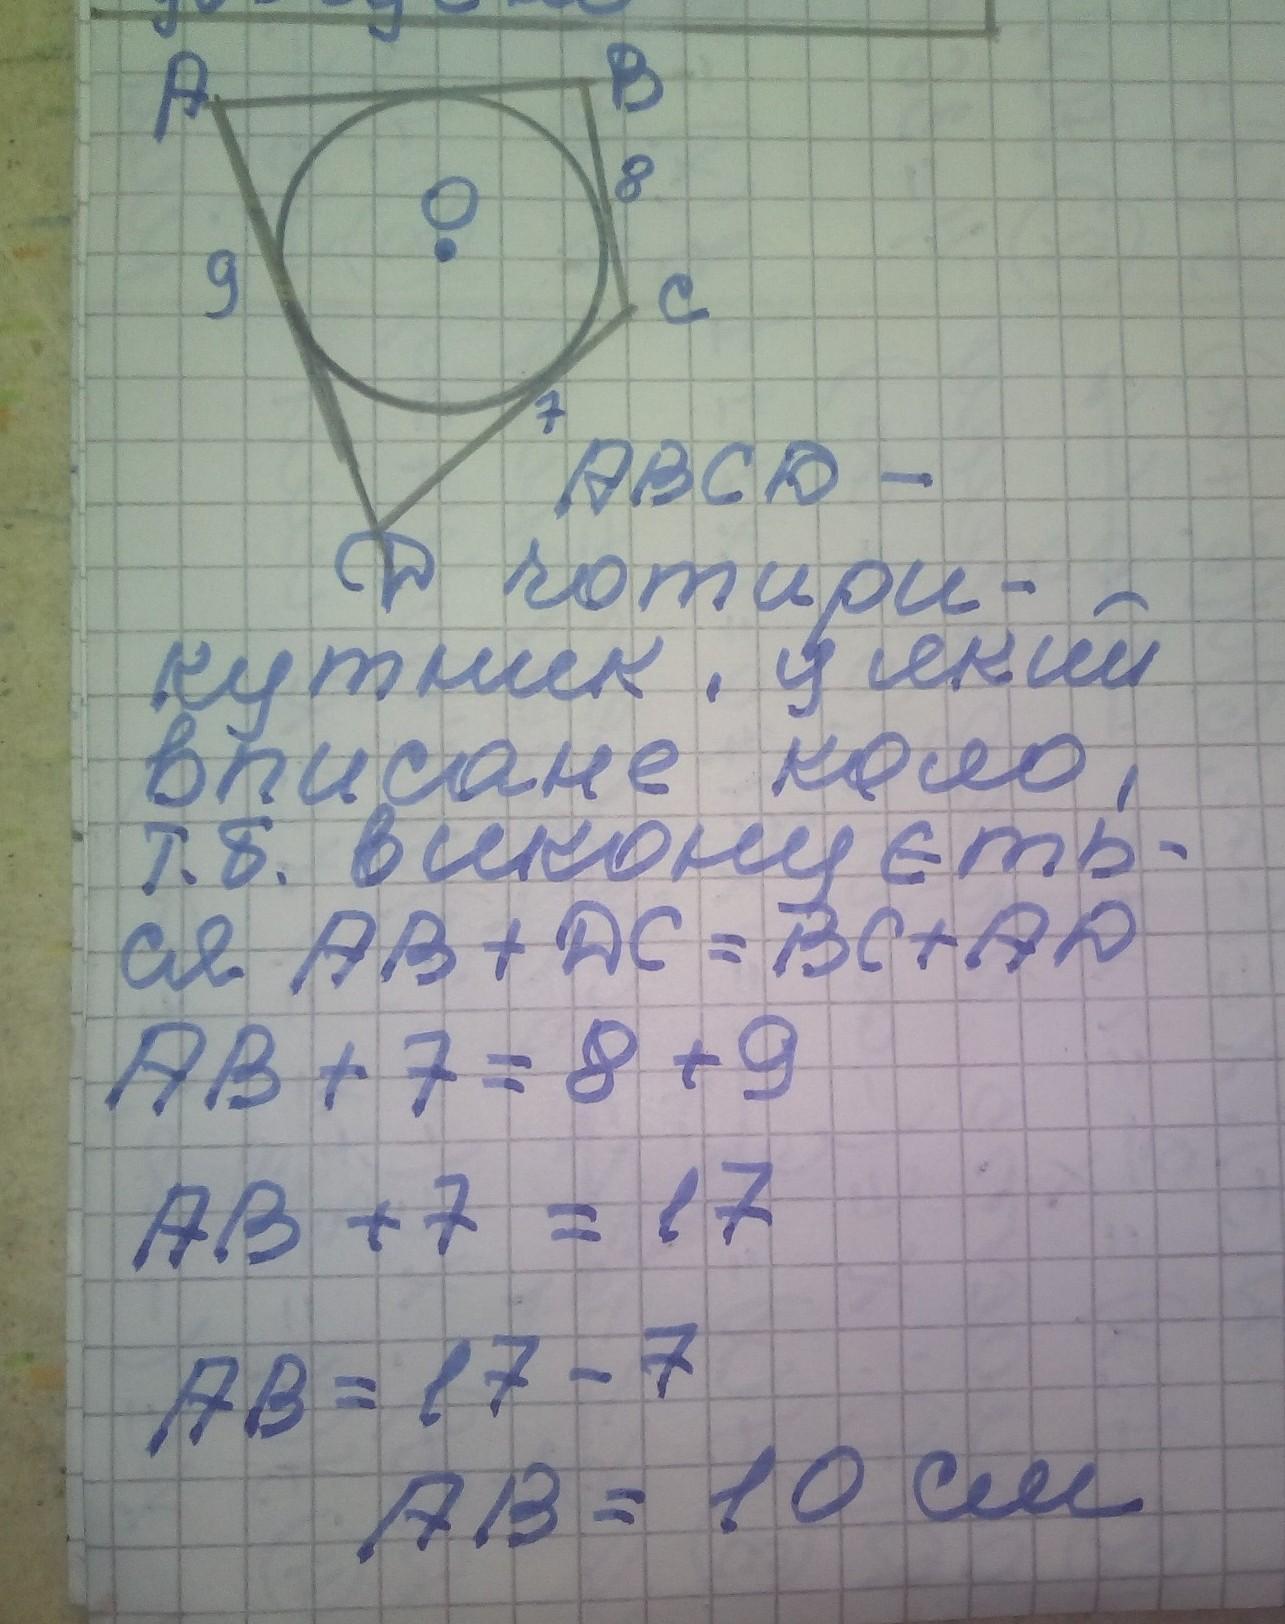 A B
O 8
9 C
7
ABCD -
D чотири-
кутник, у який
вписане коло,
т.б. виконуєть-
ся AB + DC = BC + AD
AB + 7 = 8 + 9
AB + 7 = 17
AB = 17 - 7
AB = 10 см